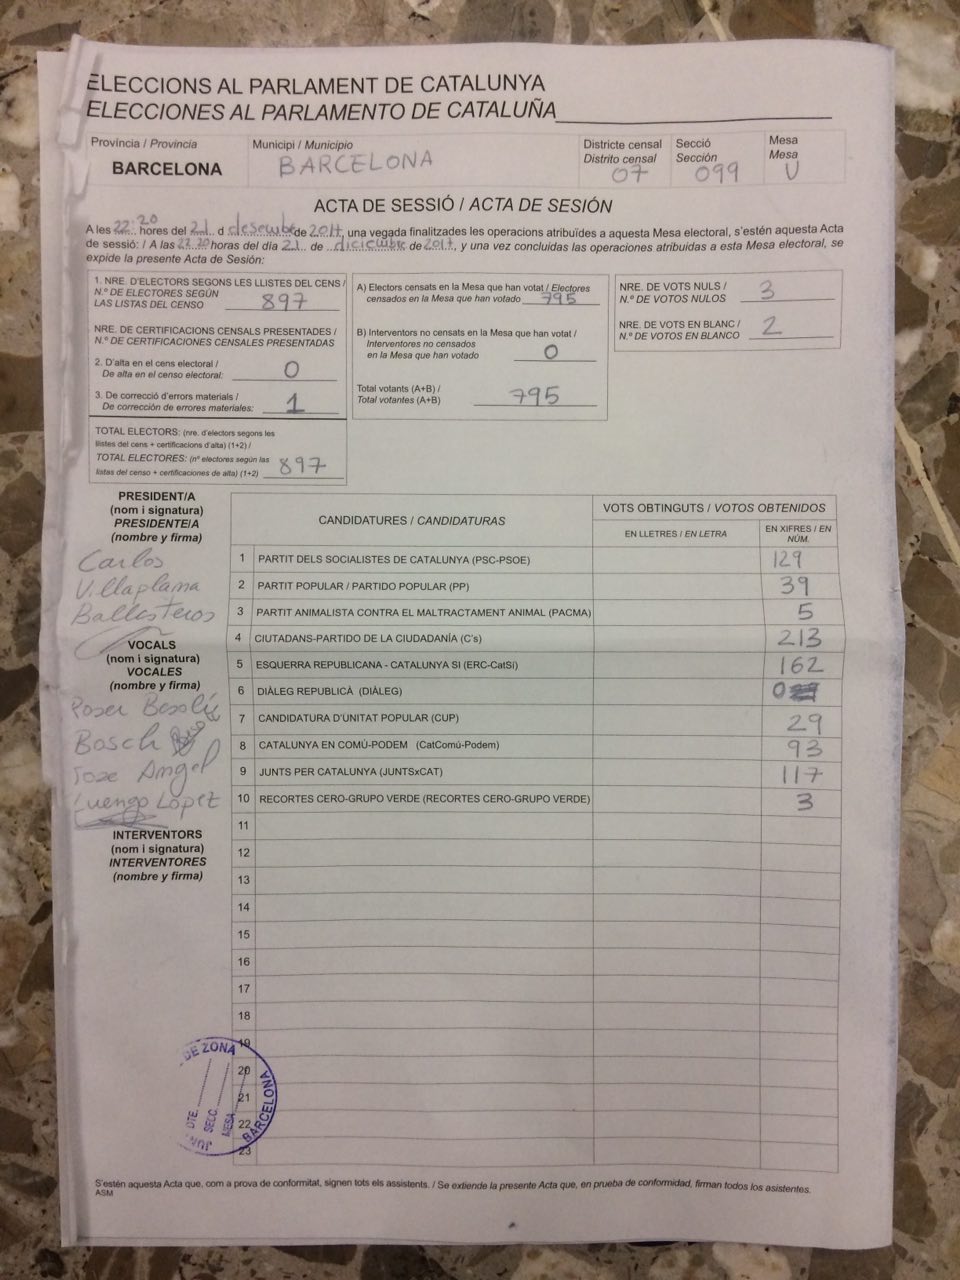 ELECCIONS AL PARLAMENT DE CATALUNYA
ELECCIONES AL PARLAMENTO DE CATALUÑA
Província / Provincia
BARCELONA
Municipi / Municipio
BARCELONA
Districte censal
Distrito censal
07
Secció
Sección
099
Mesa
Mesa
U
ACTA DE SESSIÓ / ACTA DE SESIÓN
A les 22:20 hores del 21 d desembre de 2017, una vegada finalitzades les operacions atribuïdes a aquesta Mesa electoral, s'estén aquesta Acta
de sessió: / A las 22:20 horas del día 21 de diciembre de 2017, y una vez concluidas las operaciones atribuidas a esta Mesa electoral, se
expide la presente Acta de Sesión:
1. NRE. D'ELECTORS SEGONS LES LLISTES DEL CENS /
N.º DE ELECTORES SEGÚN
LAS LISTAS DEL CENSO 897
NRE. DE CERTIFICACIONS CENSALS PRESENTADES /
N.º DE CERTIFICACIONES CENSALES PRESENTADAS
2. D'alta en el cens electoral /
De alta en el censo electoral: 0
3. De correcció d'errors materials /
De corrección de errores materiales: 1
TOTAL ELECTORS: (nre. d'electors segons les
llistes del cens + certificacions d'alta) (1+2) /
TOTAL ELECTORES: (nº electores según las
listas del censo + certificaciones de alta) (1+2) 897
A) Electors censats en la Mesa que han votat / Electores
censados en la Mesa que han votado 795
B) Interventors no censats en la Mesa que han votat /
Interventores no censados
en la Mesa que han votado 0
Total votants (A+B) /
Total votantes (A+B) 795
NRE. DE VOTS NULS /
N.º DE VOTOS NULOS 3
NRE. DE VOTS EN BLANC /
N.º DE VOTOS EN BLANCO 2
PRESIDENT/A
(nom i signatura)
PRESIDENTE/A
(nombre y firma)
Carlos
Villaplana
Ballesteros
VOCALS
(nom i signatura)
VOCALES
(nombre y firma)
Roser
Bosch
Jose Angel
Luengo López
INTERVENTORS
(nom i signatura)
INTERVENTORES
(nombre y firma)
CANDIDATURES / CANDIDATURAS
VOTS OBTINGUTS / VOTOS OBTENIDOS
EN LLETRES / EN LETRA
EN XIFRES / EN
NÚM.
1 PARTIT DELS SOCIALISTES DE CATALUNYA (PSC-PSOE) 129
2 PARTIT POPULAR / PARTIDO POPULAR (PP) 39
3 PARTIT ANIMALISTA CONTRA EL MALTRACTAMENT ANIMAL (PACMA) 5
4 CIUTADANS-PARTIDO DE LA CIUDADANÍA (C's) 213
5 ESQUERRA REPUBLICANA - CATALUNYA SI (ERC-CatSí) 162
6 DIÀLEG REPUBLICÀ (DIÀLEG) 0
7 CANDIDATURA D'UNITAT POPULAR (CUP) 29
8 CATALUNYA EN COMÚ-PODEM (CatComú-Podem) 93
9 JUNTS PER CATALUNYA (JUNTSxCAT) 117
10 RECORTES CERO-GRUPO VERDE (RECORTES CERO-GRUPO VERDE) 3
11
12
13
14
15
16
17
18
19
20
21
22
23
DE ZONA
DTE.
SECC.
MESA
BARCELONA
S'estén aquesta Acta que, com a prova de conformitat, signen tots els assistents. / Se extiende la presente Acta que, en prueba de conformidad, firman todos los asistentes.
ASM